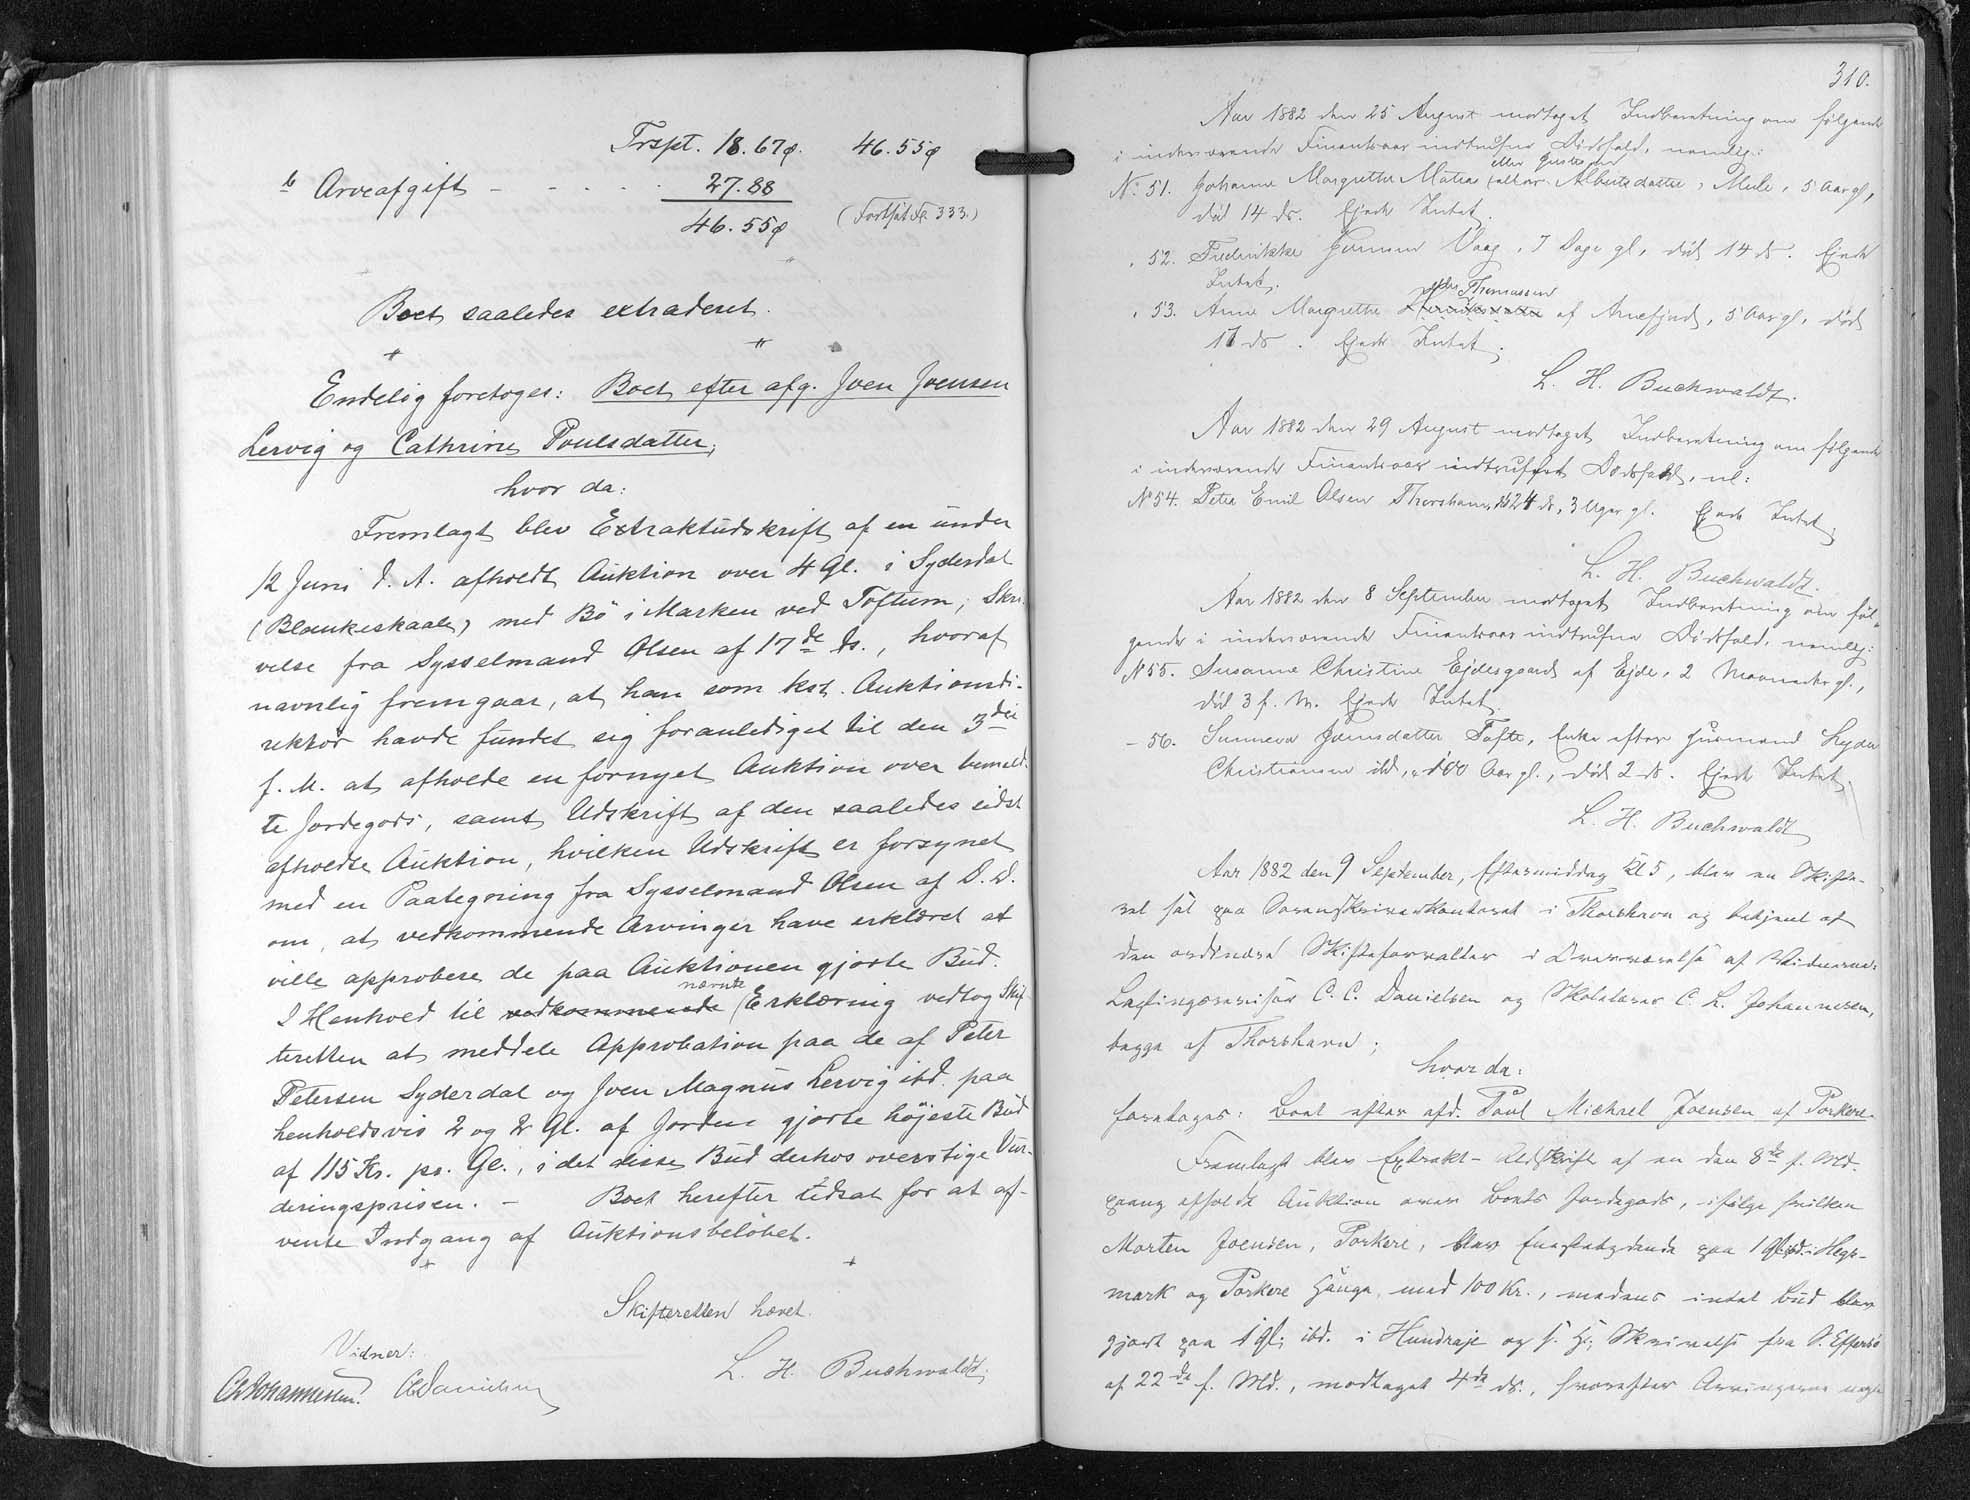 Trspt. 18.67ø. 46.55ø
b Arveafgift - - - - - 27.88
46.55ø (Fortsat Fol. 333.)
Boet saaledes extraderet.
Endelig foretoges: Boet efter afg. Joen Joensen
Lervig og Cathrine Poulsdatter,
hvor da:
Fremlagt blev Extraktudskrift af en under
12 Juni d. A. afholdt Auktion over 4 Gl. i Syderdal
(Blankeskaale) med Bø i Marken ved Toftum; Skri-
velse fra Sysselmand Olsen af 17de ds., hvoraf
navnlig fremgaar, at han som kst. Auktionsdi-
rektør havde fundet sig foranlediget til den 3die
f. M. at afholde en fornyet Auktion over bemeld-
te Jordegods, samt Udskrift af den saaledes sidst
afholdte Auktion, hvilken Udskrift er forsynet
med en Paategning fra Sysselmand Olsen af D. D.
om, at vedkommende Arvinger have erklæret at
ville approbere de paa Auktionen gjorte Bud.
I Henhold til vedkommende nævnte Erklæring vedtog Skif-
teretten at meddele Approbation paa de af Peter
Petersen Syderdal og Joen Magnus Lervig ibd. paa
henholdsvis 2 og 2 Gl. af Jorden gjorte højeste Bud
af 115 Kr. pr. Gl., idet disse Bud derhos overstige Vur-
deringsprisen. - Boet herefter udsat for at af-
vente Indgang af Auktionsbeløbet.
Skifteretten hævet.
Vidner: L. H. Buchwaldt.
Ch Johannesen. CDanielsen
310.
Aar 1882 den 25 August modtaget Indberetning om følgende
i indeværende Finantsaar indtrufne Dødsfald, nemlig:
No. 51. Johanne Margrethe Maria eller Albertsdatter, Mule, 5 Aar gl,
død 14 ds. Ejede Intet.
" 52. Fredrikke Joensen Vaag, 7 Dage gl, død 14 ds. Ejede
Intet.
" 53. Anne Margrethe Thomassen af Arnefjord, 5 Aar gl, død
17 ds. Ejede Intet.
L. H. Buchwaldt.
Aar 1882 den 29 August modtaget Indberetning om følgende
i indeværende Finantsaar indtruffet Dødsfald, nl:
No 54. Peter Emil Olsen Thorshavn, død 24 ds, 3 Uger gl. Ejede Intet.
L. H. Buchwaldt.
Aar 1882 den 8 September modtaget Indberetning om føl-
gende i indeværende Finantsaar indtrufne Dødsfald, nemlig:
No 55. Susanne Christine Ejdesgaard af Ejde, 2 Maaneder gl.,
død 3 f. M. Ejede Intet.
- 56. Sunneva Joensdatter Tofte, Enke efter Husmand
Christiansen ibd, Aar gl., død 2 ds. Ejede Intet.
L. H. Buchwaldt
Aar 1882 den 9 September, Eftermiddag Kl 5, blev en Skifte-
ret sat paa Sorenskriverkontoret i Thorshavn og betjent af
den ordinære Skifteforvalter i Overværelse af Vidnerne:
Lagtingsrevisor C. C. Danielsen og Skolelærer C. L. Johannesen,
begge af Thorshavn;
hvor da:
foretoges: Boet efter afd. Poul Michael Joensen af Porkere.
Fremlagt blev Extrakt-Udskrift af en den 8de f. Md.
paany afholdt Auktion over Boets Jordegods, ifølge hvilken
Morten Joensen, Porkere, blev Enestebydende paa 1 Gl. ibd. i Hegs-
mark og Porkere Hauga, med 100 Kr., medens intet Bud blev
gjort paa 1 Gl. ibd. i Hundraje og Skrivelse fra S. Effersø
af 22de f. Md., modtaget 4de ds., hvorefter Arvingerne